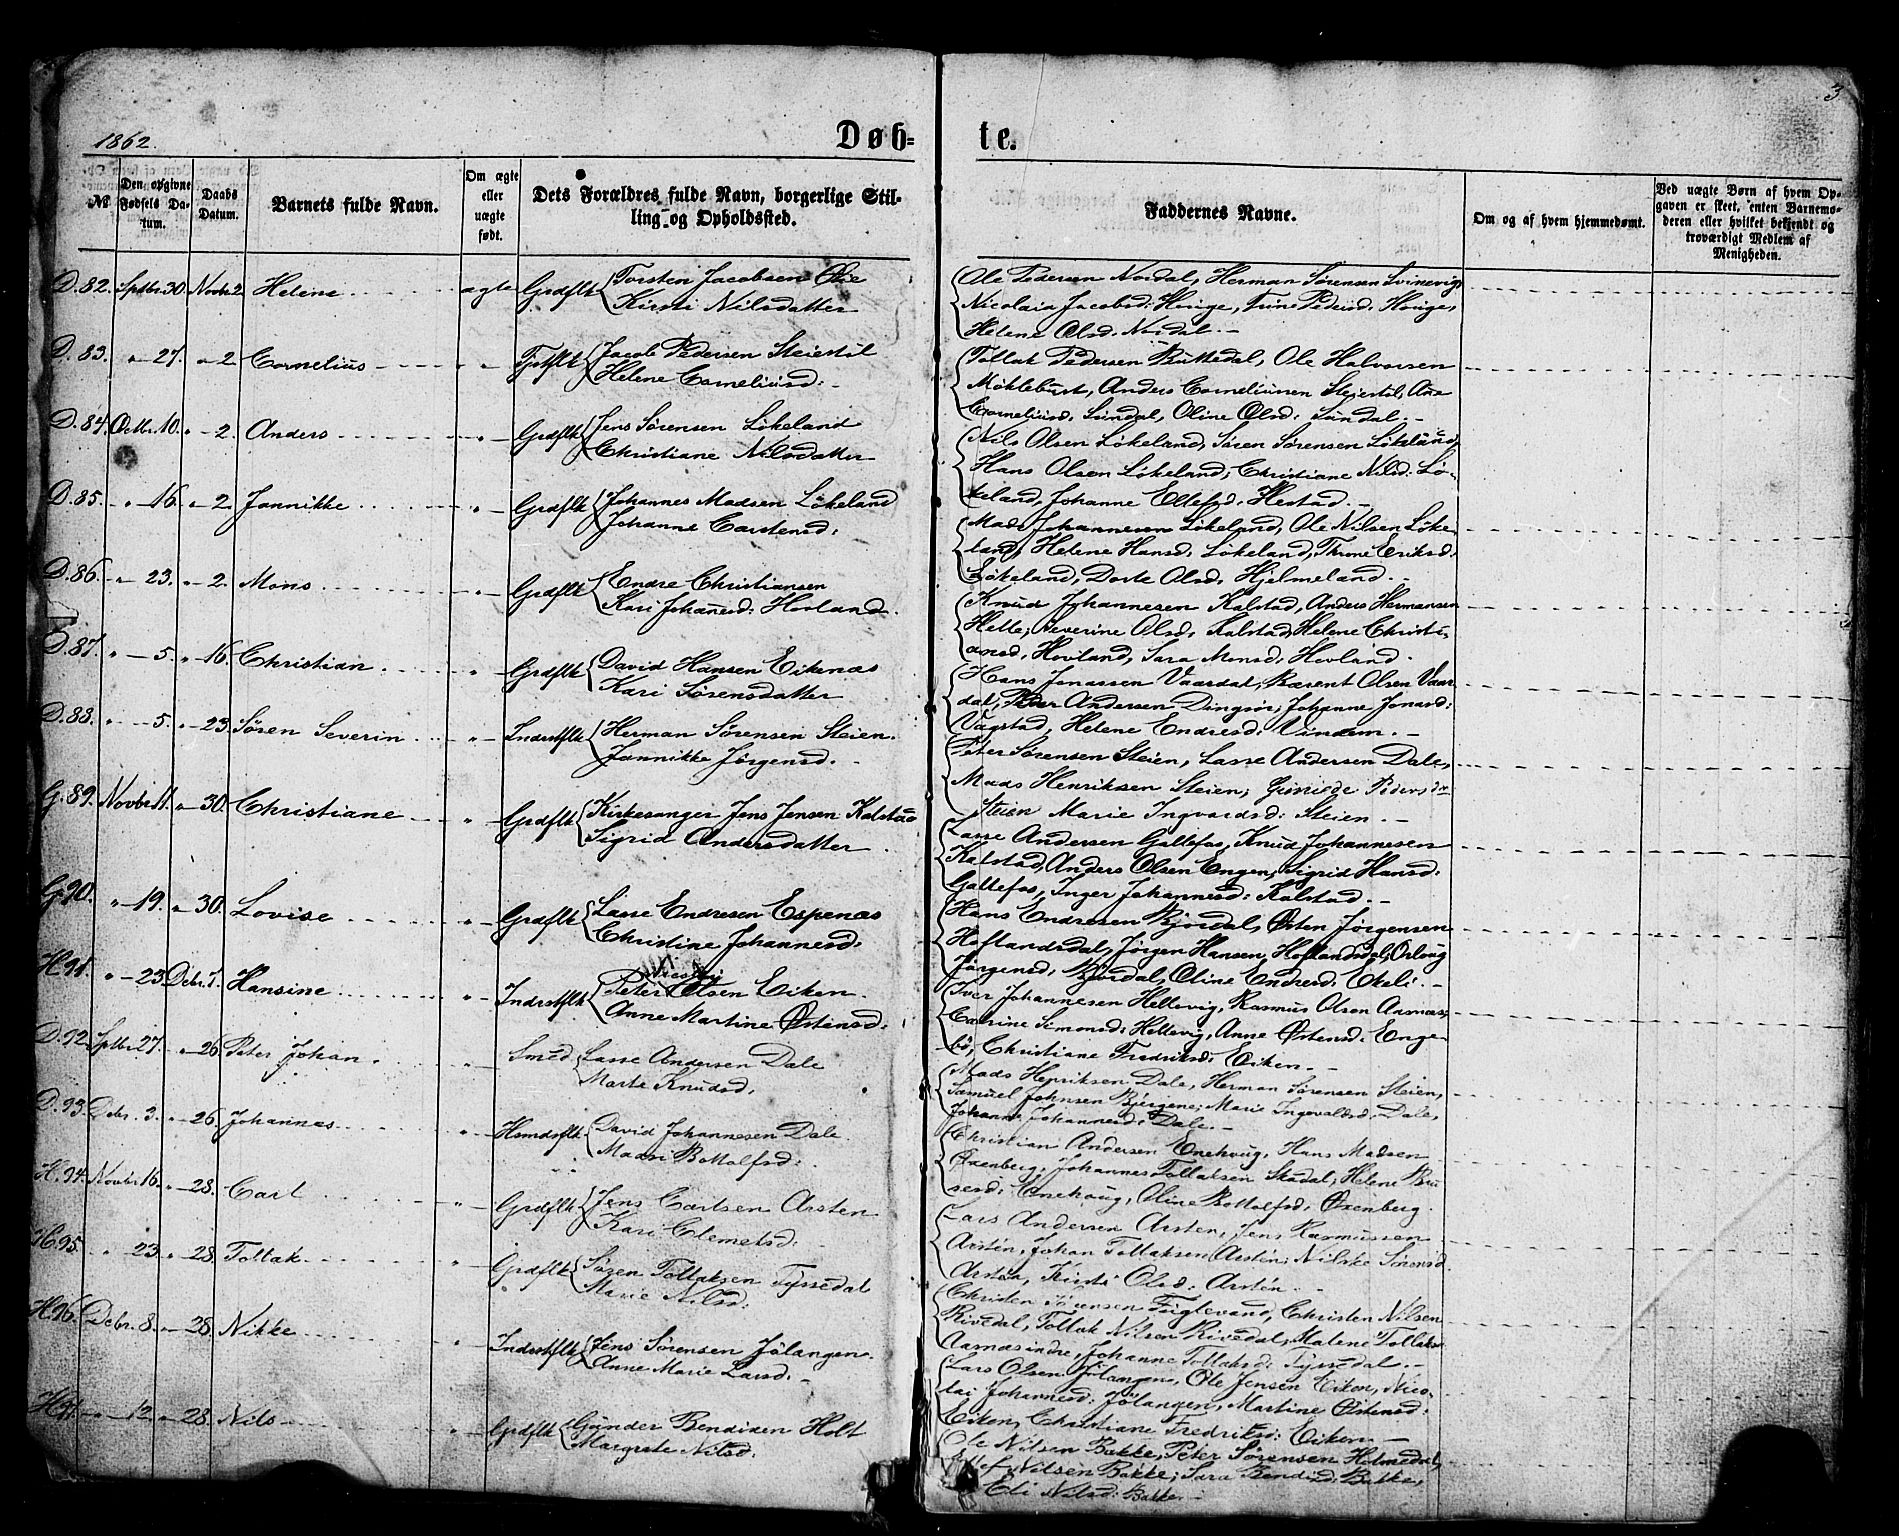 3
1862.
Døb= te.
№
Den opgivne Fødsels Da-tum.
Daabs Datum.
Barnets fulde Navn.
Om ægte eller uægte født.
Dets Forældres fulde Navn, borgerlige Stil-
ling og Opholdssted.
Faddernes Navne.
Om og af hvem hjemmedømt.
Ved uægte Børn af hvem Op-
gaven er skeet, enten Barnemo-
deren eller hvilket bekjendt og
troværdigt Medlem af
Menigheden.
D. 82. Sptbr 30. Novbr 2 Helene ægte Grdflk Torsten Jacobsen Øie
Kirsti Nilsdatter
Ole Pedersen Nordal, Herman Sørensen Svinevig,
Nicolaia Jacobsd: Hovige, Trine Pedersd. Hovige,
Helene Olsd. Nordal.
D. 83. " 27. " 2 Cornelius " Jacob Pedersen Steiestil
Helene Corneliusd:
Tollak Pedersen Buttedal, Ole Halvorsen
Møklebust, Anders Corneliussen Steiestil, Ane
Corneliusd. Sundal, Oline Olsd: Sundal.
D. 84. Octbr. 10. " 2. Anders " Grdflk Jens Sørensen Løkeland
Christiane Nilsdatter
Nils Olsen Løkeland, Søren Sørensen Løkeland,
Hans Olsen Løkeland, Christiane Nilsd: Lø-
keland, Johanne Ellefsd. Hestad.
D. 85. " 16. " 2. Jannikke " Grdflk Johannes Madsen Løkeland
Johanne Carstensd:
Mads Johannesen Løkeland, Ole Nilsen Løke-
land, Helene Hansd. Løkeland, Thrine Eriksd.
Løkeland, Dorte Olsd. Hjelmeland.
D. 86. " 23. " 2. Mons " Grdflk Endre Christiansen
Kari Johanesd: Hovland.
Knud Johannesen Kalstad, Anders Hermansen
Helle, Severine Olsd: Kalstad, Helene Christi-
ansd. Hovland, Sara Monsd, Hovland.
D. 87. " 5. " 16. Christian " Grdflk David Hansen Eikenæs
Kari Sørensdatter
Hans Jonassen Vaardal, Bærent Olsen Vaar-
dal, Peder Andersen Dingsør, Johanne Jonasd:
Vagstad, Helene Endresd: Vindem.
D. 88. " 5. " 23. Søren Severin " Indrstflk Herman Sørensen Steien.
Jannikke Jørgensd.
Peter Sørensen Steien, Lasse Andersen Dale,
Mads Henriksen Steien, Gunilde Peders dr
Steien Marie Ingvardsd: Steien.
G. 89. Novbr 11. " 30. Christiane " Grdflk Kirkesanger Jens Jensen Kalstad
Sigrid Andersdatter
Lasse Andersen Gallefos, Knud Johannesen
Kalstad, Anders Olsen Engen, Sigrid Hansd:
Gallefos, Inger Johannesd: Kalstad.
G. 90. " 19. " 30. Lovise " Grdflk Lasse Endresen Espenæs
Christine Johannesd:
Hans Endresen Bjordal, Østen Jørgensen
Hoflandsdal, Jørgen Hansen, Hoflandsdal, Orloug
Jørgensd, Bjordal, Oline Endresd: Ekeli.
H. 91. " 23 Debr. 7. Hansine " Indrstflk Peter Olsen Eiken.
Anne Martine Østensd:
Iver Johannesen Hellevig, Rasmus Olsen Aasnæs,
Catrine Simonsd: Hellevig, Anne Østensd: Enge-
bø, Christiane Fredriksd: Eiken.
D. 92. Sptbr 27. " 26 Peter Johan " Smed Lasse Andersen Dale
Marte Knudsd.
Mads Henriksen Dale, Herman Sørensen Steien,
Samuel Johnsen Bjergene, Marie Ingevaldsd: Dale,
Johanne Johannesd: Dale.
D. 93. Debr. 3. " 26 Johannes " Hsmdsflk David Johannesen Dale.
Madsi Bottolfsd:
Christian Andersen Enehoug, Hans Madsen
Øxenberg, Johannes Tollaksen Skadal, Helene
Enehoug, Oline Bottolfsd: Øxenberg.
H. 94. Novbr 16. " 28. Carl " Grdflk Jens Carlsen Arsten
Kari Clemetsd.
Lars Andersen Arsten, Jens Rasmussen
Arsten, Johan Tollaksen Arsten, Nilske Sørensd.
Arsten, Kirsti Olsd. Arsten.
H. 95. " 23. " 28. Tollak " Grdflk Søren Tollaksen Tyssedal
Marie Nilsd:
Christen Sørensen Fuglevand, Christen Nilsen
Rivedal, Tollak Nilsen Rivedal, Malene Tollaksd.
Aarnæs indre, Johanne Tollaksd: Tyssedal.
H. 96. Debr. 8. " 28. Nikke " Indrstflk Jens Sørensen Jølangen.
Anne Marie Larsd.
Lars Olsen Jølangen, Ole Jensen Eiken, Nico-
lai Johannesd: Jølangen, Martine Østensd:
Eiken, Christiane Fredriksd: Eiken.
H. 97 " 12. " 28. Nils " Grdflk Gunder Bendixen Holt
Margrete Nilsd:
Ole Nilsen Bakke, Peter Sørensen Holmedal,
Ellef Nilsen Bakke, Sara Bendixd: Bakke,
Eli Nilsd: Bakke.